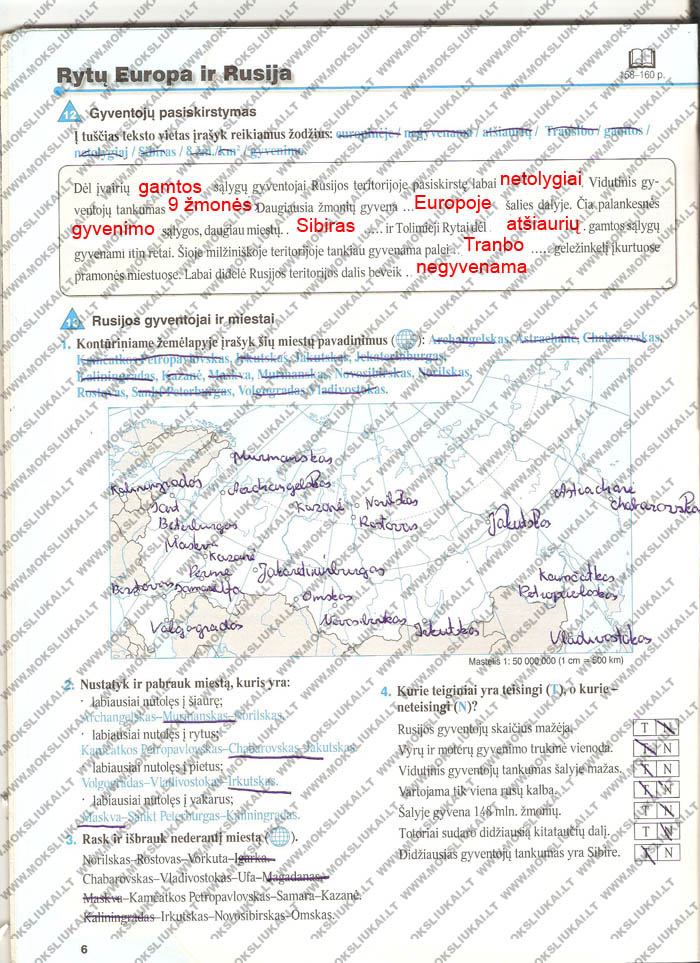 158–160 p.
Rytų Europa ir Rusija
12 Gyventojų pasiskirstymas
Į tuščias teksto vietas įrašyk reikiamus žodžius: europinėje / negyvenama / atšiaurių / Transibo / gamtos /
netolygiai / Sibiras / 8 žm./km² / gyvenimo.
Dėl įvairių gamtos sąlygų gyventojai Rusijos teritorijoje pasiskirstę labai netolygiai. Vidutinis gy-
ventojų tankumas 9 žmonės Daugiausia žmonių gyvena ... Europoje šalies dalyje. Čia palankesnės
gyvenimo sąlygos, daugiau miestų. . Sibiras ..... ir Tolimieji Rytai dėl atšiaurių . gamtos sąlygų
gyvenami itin retai. Šioje milžiniškoje teritorijoje tankiau gyvenama palei . . Tranbo ..... geležinkelį įkurtuose
pramonės miestuose. Labai didelė Rusijos teritorijos dalis beveik . . negyvenama
13 Rusijos gyventojai ir miestai
1. Kontūriniame žemėlapyje įrašyk šių miestų pavadinimus ( ): Archangelskas, Astrachanė, Chabarovskas,
Kamčatkos Petropavlovskas, Irkutskas, Jakutskas, Jekaterinburgas,
Kaliningradas, Kazanė, Maskva, Murmanskas, Novosibirskas, Norilskas,
Rostovas, Sankt Peterburgas, Volgogradas, Vladivostokas.
Murmanskas
Kaliningradas
Archangelskas
Astrachanė
Kazanė
Norilskas
chabarovskas
Sant
Beterburgas
Rostovas
Jakutskas
Maskva
Kazanė
Permė
Kamčatkas
Omskas
Jakutskas
Vladivostokas
Mastelis 1: 50 000 000 (1 cm = 500 km)
2. Nustatyk ir pabrauk miestą, kuris yra:
· labiausiai nutolęs į šiaurę;
Archangelskas–Murmanskas–Norilskas.
· labiausiai nutolęs į rytus;
Kamčatkos Petropavlovskas–Chabarovskas–Jakutskas.
· labiausiai nutolęs į pietus;
Volgogradas–Vladivostokas–Irkutskas.
· labiausiai nutolęs į vakarus;
Maskva–Sankt Peterburgas–Kaliningradas.
3. Rask ir išbrauk nederantį miestą ( ).
Norilskas–Rostovas–Vorkuta–Igarka.
Chabarovskas–Vladivostokas–Ufa–Magadanas.
Maskva–Kamčatkos Petropavlovskas–Samara–Kazanė.
Kaliningradas–Irkutskas–Novosibirskas–Omskas.
4. Kurie teiginiai yra teisingi (T), o kurie –
neteisingi (N)?
Rusijos gyventojų skaičius mažėja. T N
Vyrų ir moterų gyvenimo trukmė vienoda. T N
Vidutinis gyventojų tankumas šalyje mažas. T N
Vartojama tik viena rusų kalba. T N
Šalyje gyvena 146 mln. žmonių. T N
Totoriai sudaro didžiausią kitataučių dalį. T N
Didžiausias gyventojų tankumas yra Sibire. T N
6
WWW.MOKSLIUKAI.LT